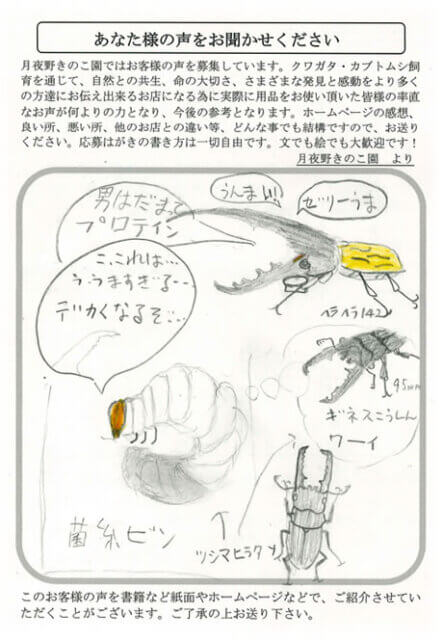 あなた様の声をお聞かせください
月夜野きのこ園ではお客様の声を募集しています。クワガタ・カブトムシ飼
育を通じて、自然との共生、命の大切さ、さまざまな発見と感動をより多く
の方達にお伝え出来るお店になる為に実際に用品をお使い頂いた皆様の率直
なお声が何よりの力となり、今後の参考となります。ホームページの感想、
良い所、悪い所、他のお店との違い等、どんな事でも結構ですので、お送り
ください。応募はがきの書き方は一切自由です。文でも絵でも大歓迎です！
月夜野きのこ園　より
男はだまって
プロテイン
うんまい!!
ゼリーうま
こ、これは…
う、うますぎる…
デカくなるぞ…
ヘラヘラ142
95mm
ギネスこうしん
ワーイ
菌糸ビン
↑
ツシマヒラタ
このお客様の声を書籍など紙面やホームページなどで、ご紹介させてい
ただくことがございます。ご了承の上お送り下さい。